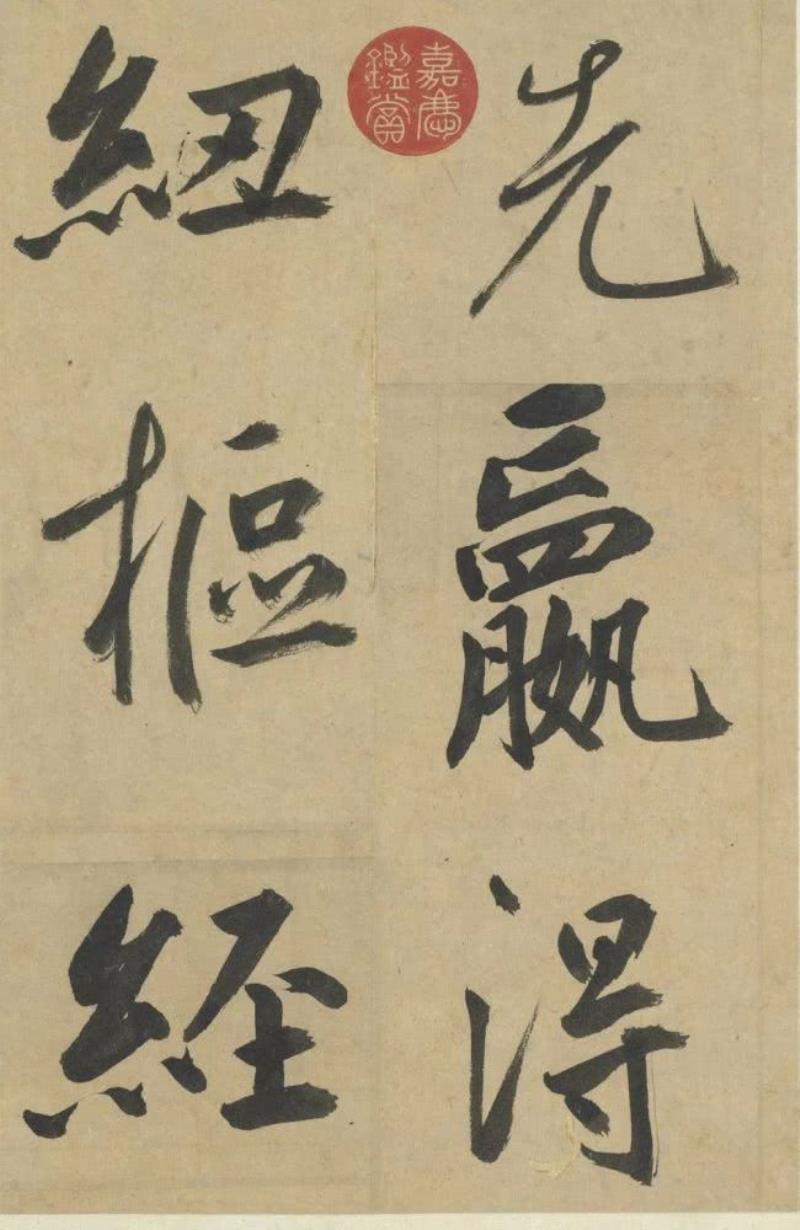 先嬴得
紐樞經
嘉慶
鑑賞